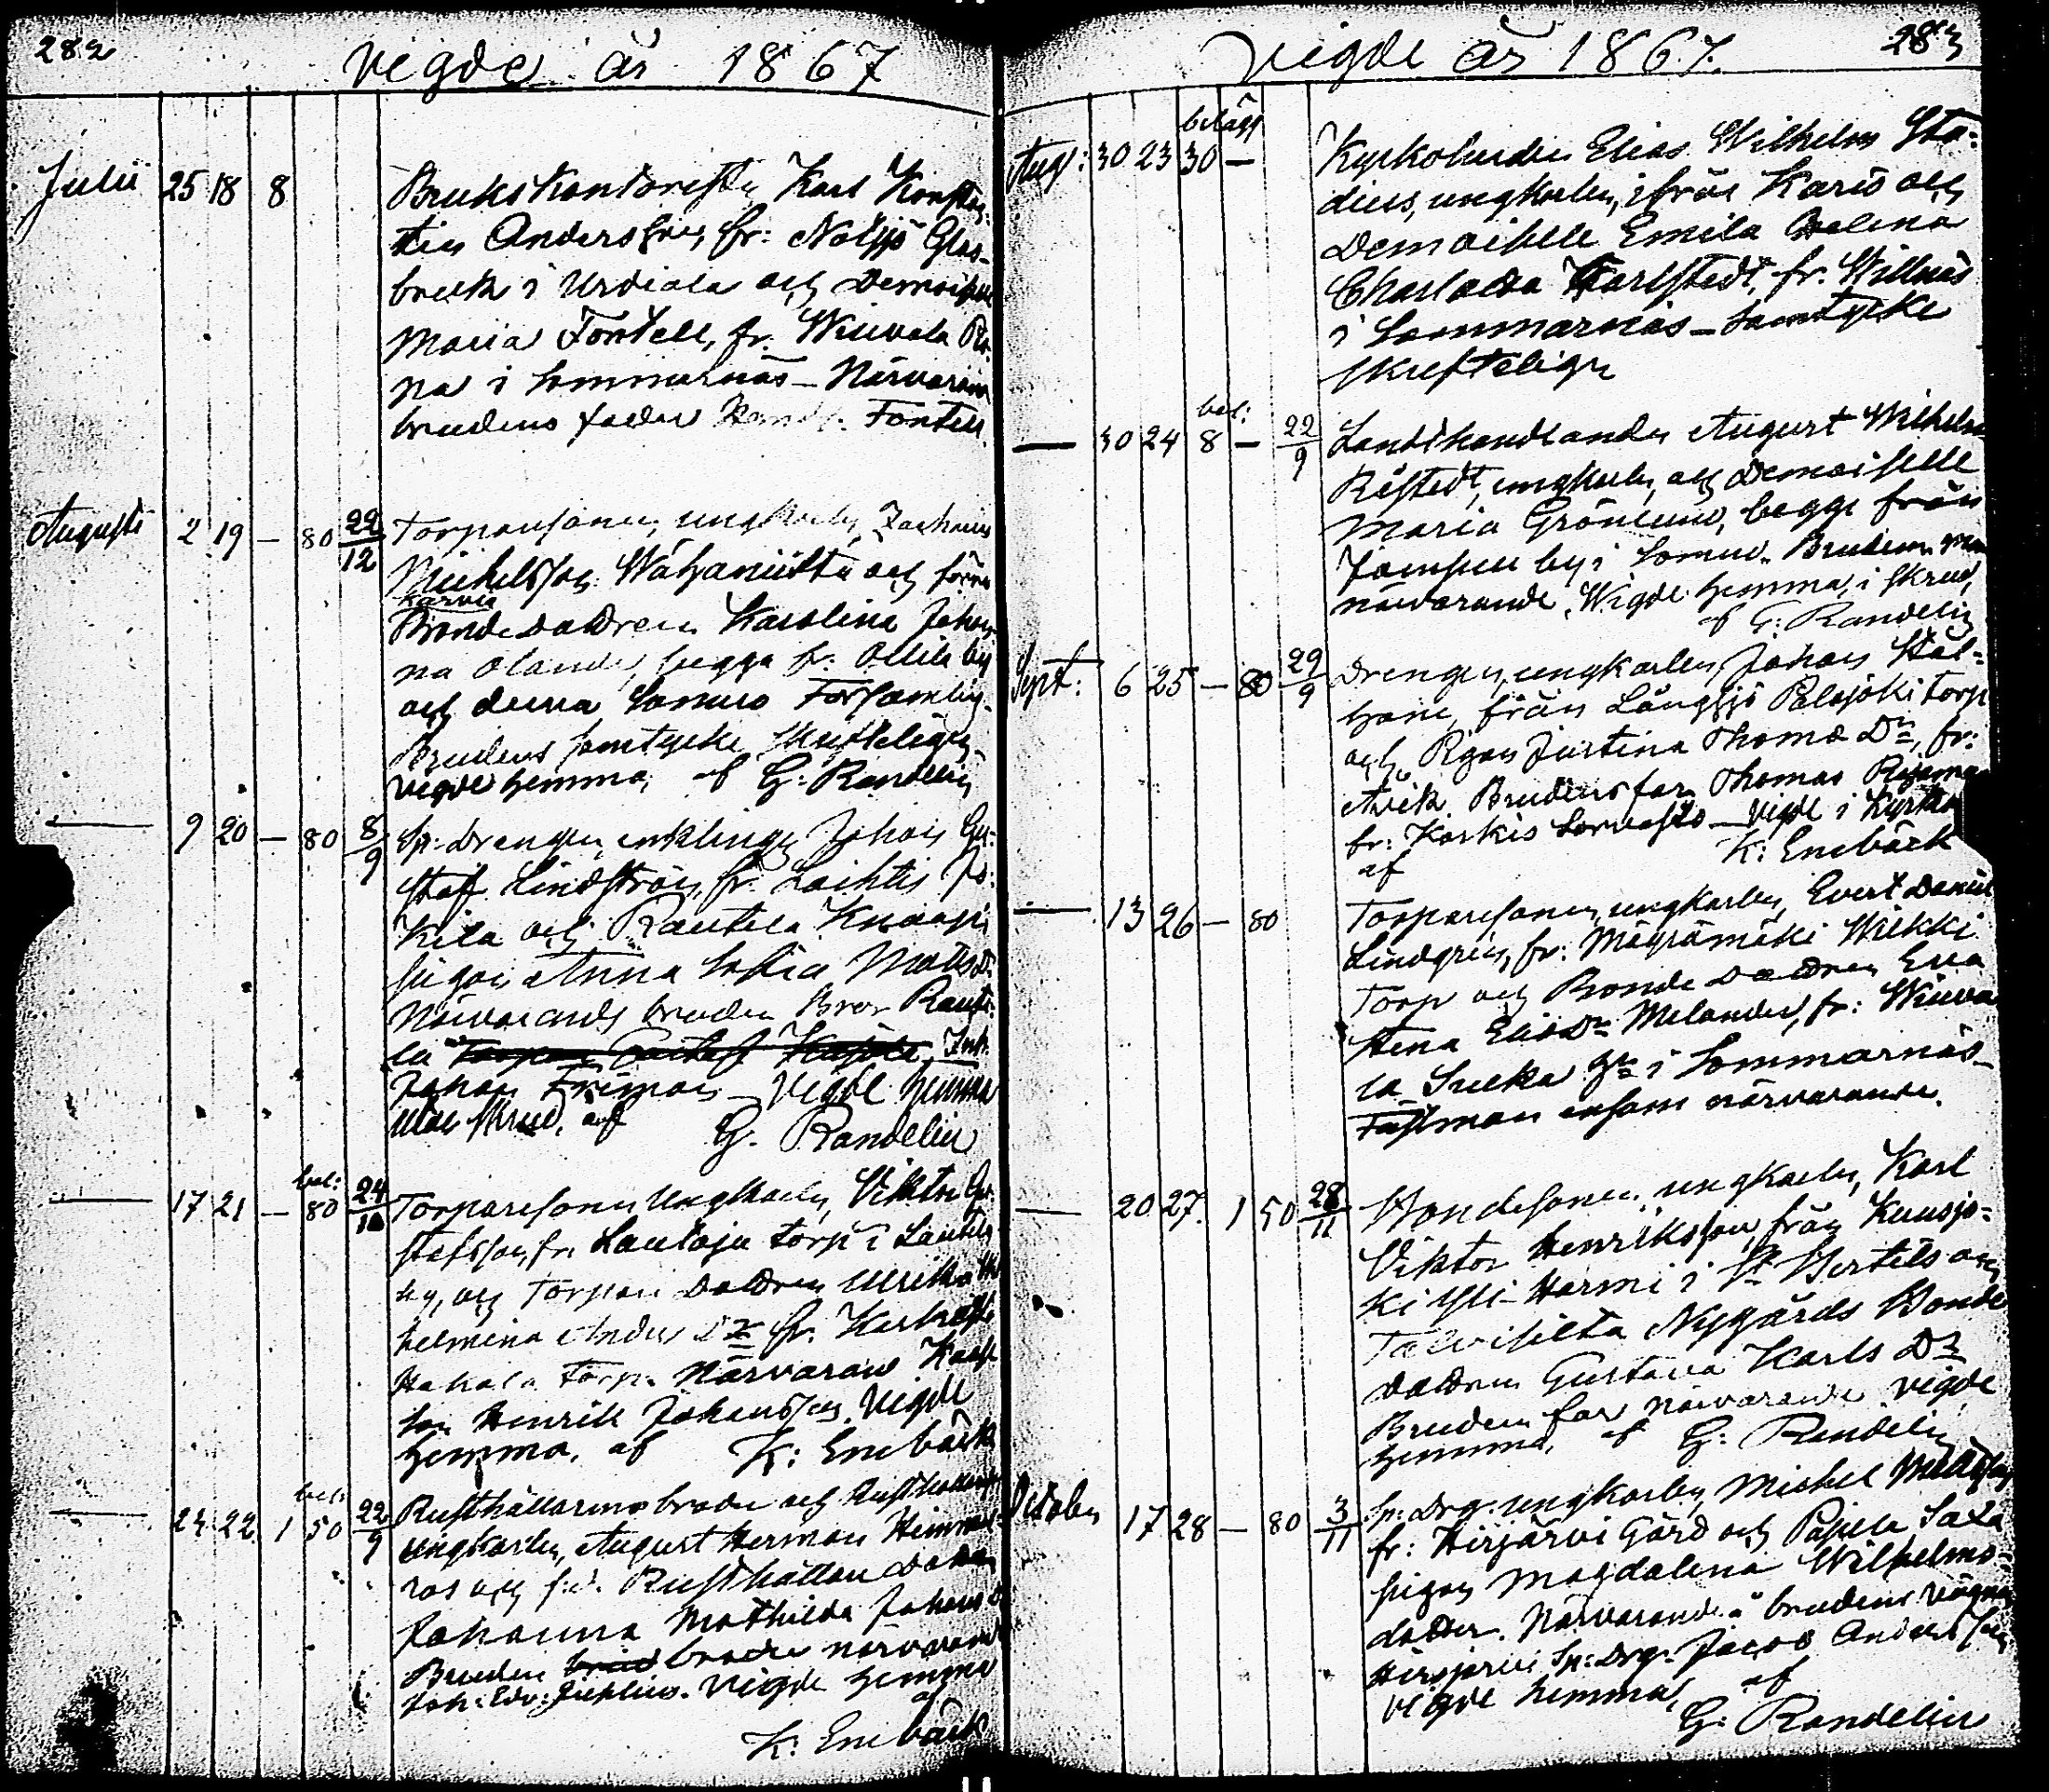 282
Vigde år 1867
Julii 25 18 8 Brukskontoristen Karl Konstan-
tin Andersson, fr: Notsjö Glas-
bruk i Urdiala och Demoiselle
Maria Fontell, fr. Wiuvala
na i Sommarnäs - Närvarande
brudens fader Fontell.
Augusti 2 19 — 80 22/12 Torparesonen, ungkarlen, Zachrius
Michelsson Wähäniitta och förra
Karvia
Bondedottren Karolina Johan-
na Olander, begge fr: Ollila by
och denna Somero Församling.
Brudens samtycke skrifteligen.
vigde hemma, af G: Randelin
— 9 20 — 80 8/9 Sp: Drengen, enklingen Johan Gu-
staf Lindström, fr. Lachtis Jo-
kila och Rautela Knaapi
pigan Anna Lovisa Mats Dr
Närvarande bruden Bror Raute-
la Inh.
Johan Friman Vigde hemma
utan skrud, af
G. Randelin
— 17 21 — bet: 80 24/10 Torparesonen Ungkarlen, Viktor Gu-
stafsson, fr. Lautoja torp i Lautela
by, och Torpare Dottren Ulrika Wil-
helmina Anders Dr fr.
Hakala Torp. Närvarand
Henrik Johansson, Vigde
hemma, af K: Enebäck
— 24 22 bet: 1 50 22/9 Rusthållarens broder och
ungkarlen, August Herman Himme-
ros och f.d. Rusthållare Dottren
Johanna Mathilda Johans D
Bruden broder närvarand
Joh: Edv: . Vigde hemma
af
K: Enebäck
Vigde år 1867.
283
Aug: 30 23 betagt 30 — Kyrkoherden Elias Wilhelm Sta-
dius, ungkarlen, ifrån Karis och
Demoiselle Emila Helena
Charlotta Karlstedt, fr. Willnäs
i Sommarnäs - Samtycke
skrifteligen
— 30 24 bet: 8 — 22/9 Landthandlanden August Wilhelm
Råstedt, ungkarlen, och Demoiselle
Maria Grönlund, begge från
by i Somero. Brudens
närvarande. Vigde hemma, i skrud,
af G: Randelin
Sept: 6 25 — 80 29/9 Drengen, ungkarlen, Johan Stål-
hane, från Långsjö Palojoki torp
och Pigan Justina Thomæ Dr, fr:
Avik. Brudens far, Thomas
fr: Kerkis Sorvasto - Vigde i Kyrkan
af K: Enebäck
— 13 26 — 80 Torparesonen, ungkarlen, Evert Daniel
Lindgren, fr: Mägrämäki Wiikki
Torp och Bonde Dottren Eva
Stena Elias Dr Melander, fr: Wiuva-
la Sucka i Sommarnäs -
Fästman ensam närvarande.
— 20 27. 1 50 28/11 Bondesonen, ungkarlen, Karl
Viktor Henriksson, från Kuusjo-
ki Yli-Hormi i St Bertils och
Talvisilta Nygårds Bonde
Dottren Gustava Karls Dr
Bruden far närvarande vigde
hemma, af G: Randelin
October 17 28 — 80 3/11 Sp: Drg: ungkarlen, Michel Mattsson
fr: Hirsjärvi Gård och Pajula Sala
pigan Magdalena Wilhelms-
dotter. Närvarande å brudens vägnar
Hirsjärvi Sp: Drg: Jacob Andersson
vigde hemma, af
G: Randelin